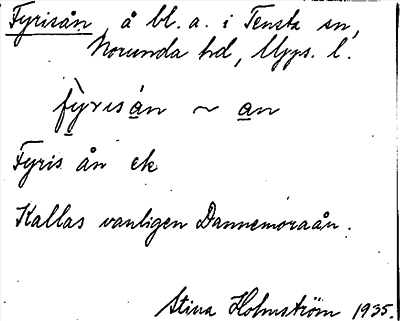 Fyrisån å bl. a. i Tensta sn,
Norunda hd, Upps. l.
fỳrisán ~ an
Fyris ån ek
Kallas vanligen Dannemoraån.
Stina Holmström 1935.